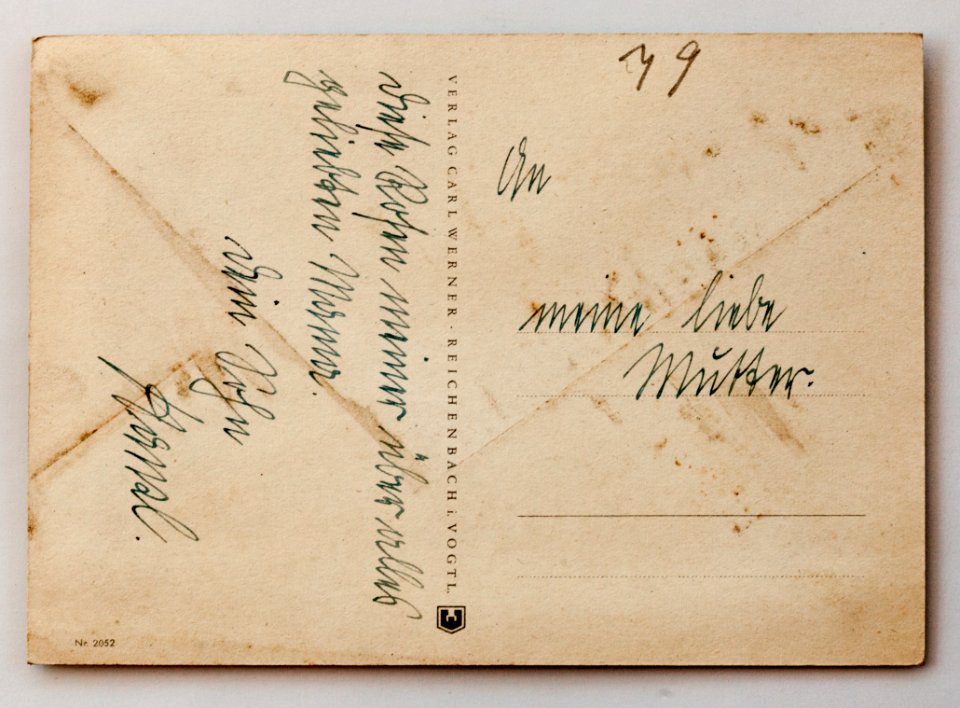 An
meine liebe
Mutter.
VERLAG CARL WERNER · REICHENBACH i. VOGTL.
Diese Rosen meiner über alles
geliebten Mama.
Dein Sohn
Nr. 2052